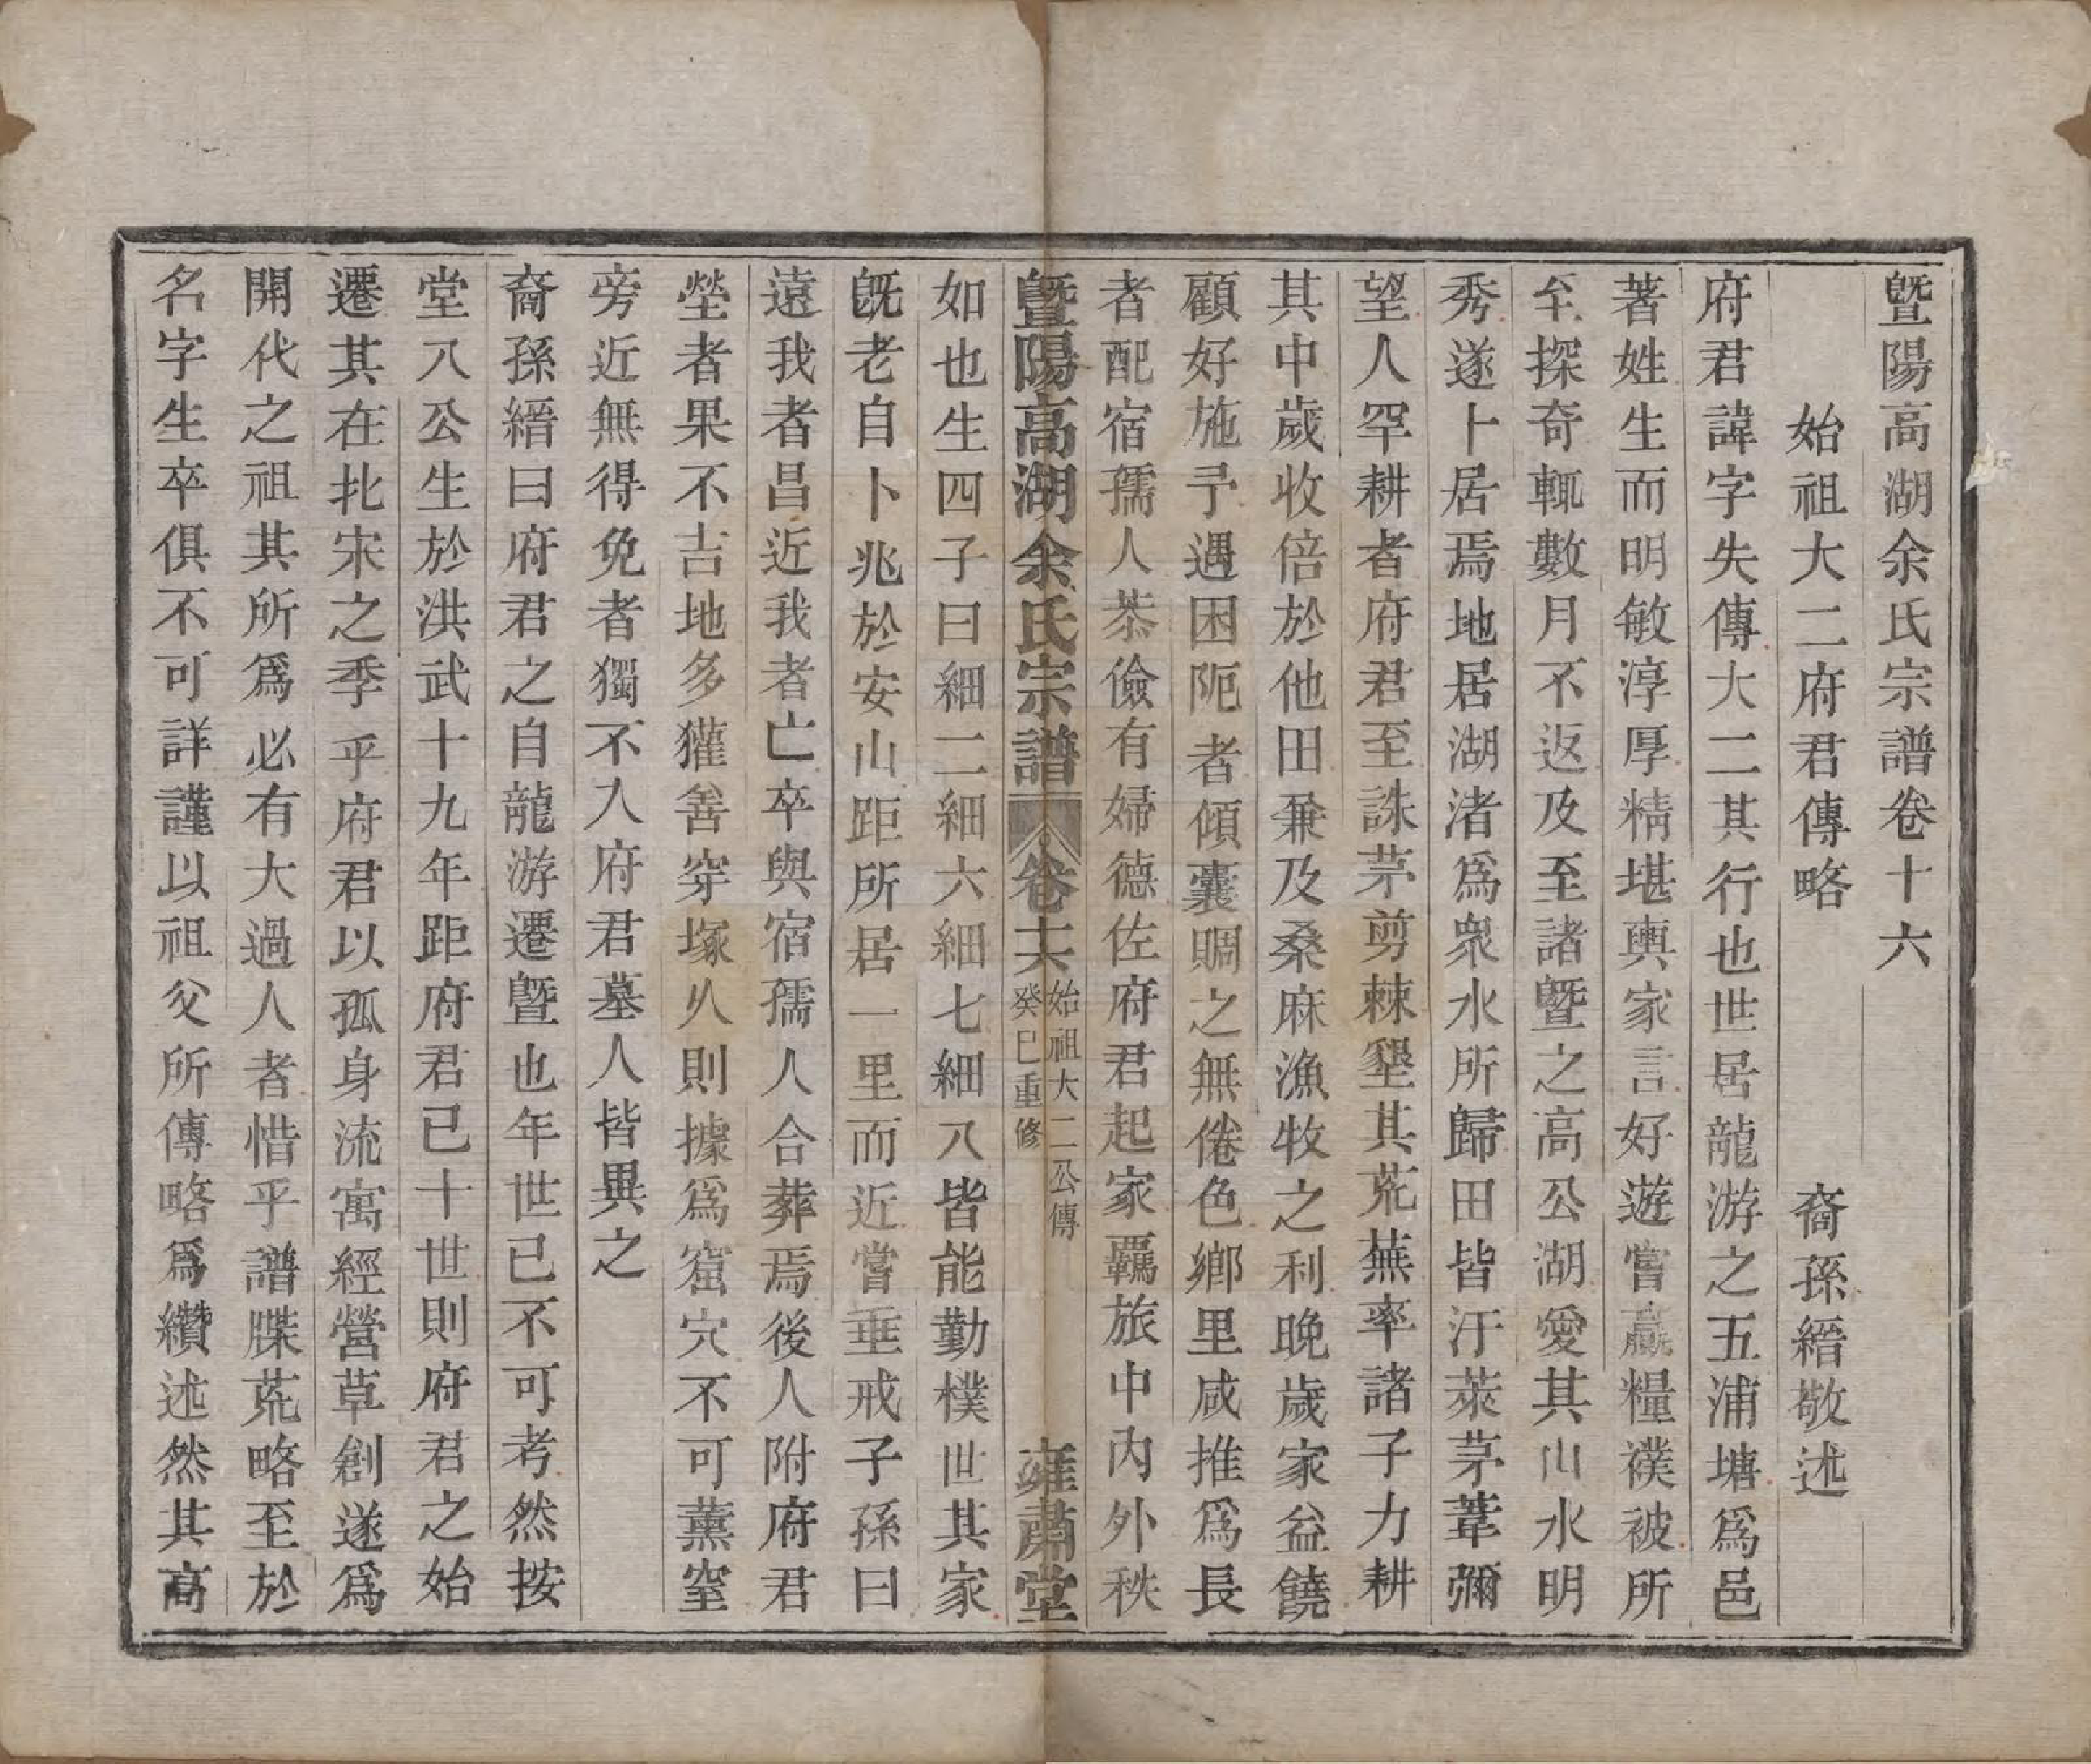 暨陽高湖余氏宗譜卷十六
始祖大二府君傳略　裔孫縉敬述
府君諱字失傳大二其行也世居龍游之五浦塘爲邑
著姓生而明敏淳厚精堪輿家言好遊嘗羸糧襆被所
至探奇輒數月不返及至諸暨之高公湖愛其山水明
秀遂卜居焉地居湖渚爲衆水所歸田皆汙萊茅葦彌
望人罕耕者府君至誅茅剪棘墾其荒蕪率諸子力耕
其中歲收倍於他田兼及桑麻漁牧之利晚歲家益饒
顧好施予遇困阨者傾囊賙之無倦色鄉里咸推爲長
者配宿孺人恭儉有婦德佐府君起家羈旅中內外秩
暨陽高湖余氏宗譜 卷十六 始祖大二公傳 癸巳重修 雍肅堂
如也生四子曰細二細六細七細八皆能勤樸世其家
旣老自卜兆於安山距所居一里而近嘗垂戒子孫曰
遠我者昌近我者亡卒與宿孺人合葬焉後人附府君
塋者果不吉地多獾善穿塚久則據爲窟穴不可薰窒
旁近無得免者獨不入府君墓人皆異之
裔孫縉曰府君之自龍游遷暨也年世已不可考然按
堂八公生於洪武十九年距府君已十世則府君之始
遷其在北宋之季乎府君以孤身流寓經營草創遂爲
開代之祖其所爲必有大過人者惜乎譜牒荒略至於
名字生卒俱不可詳謹以祖父所傳略爲纘述然其高